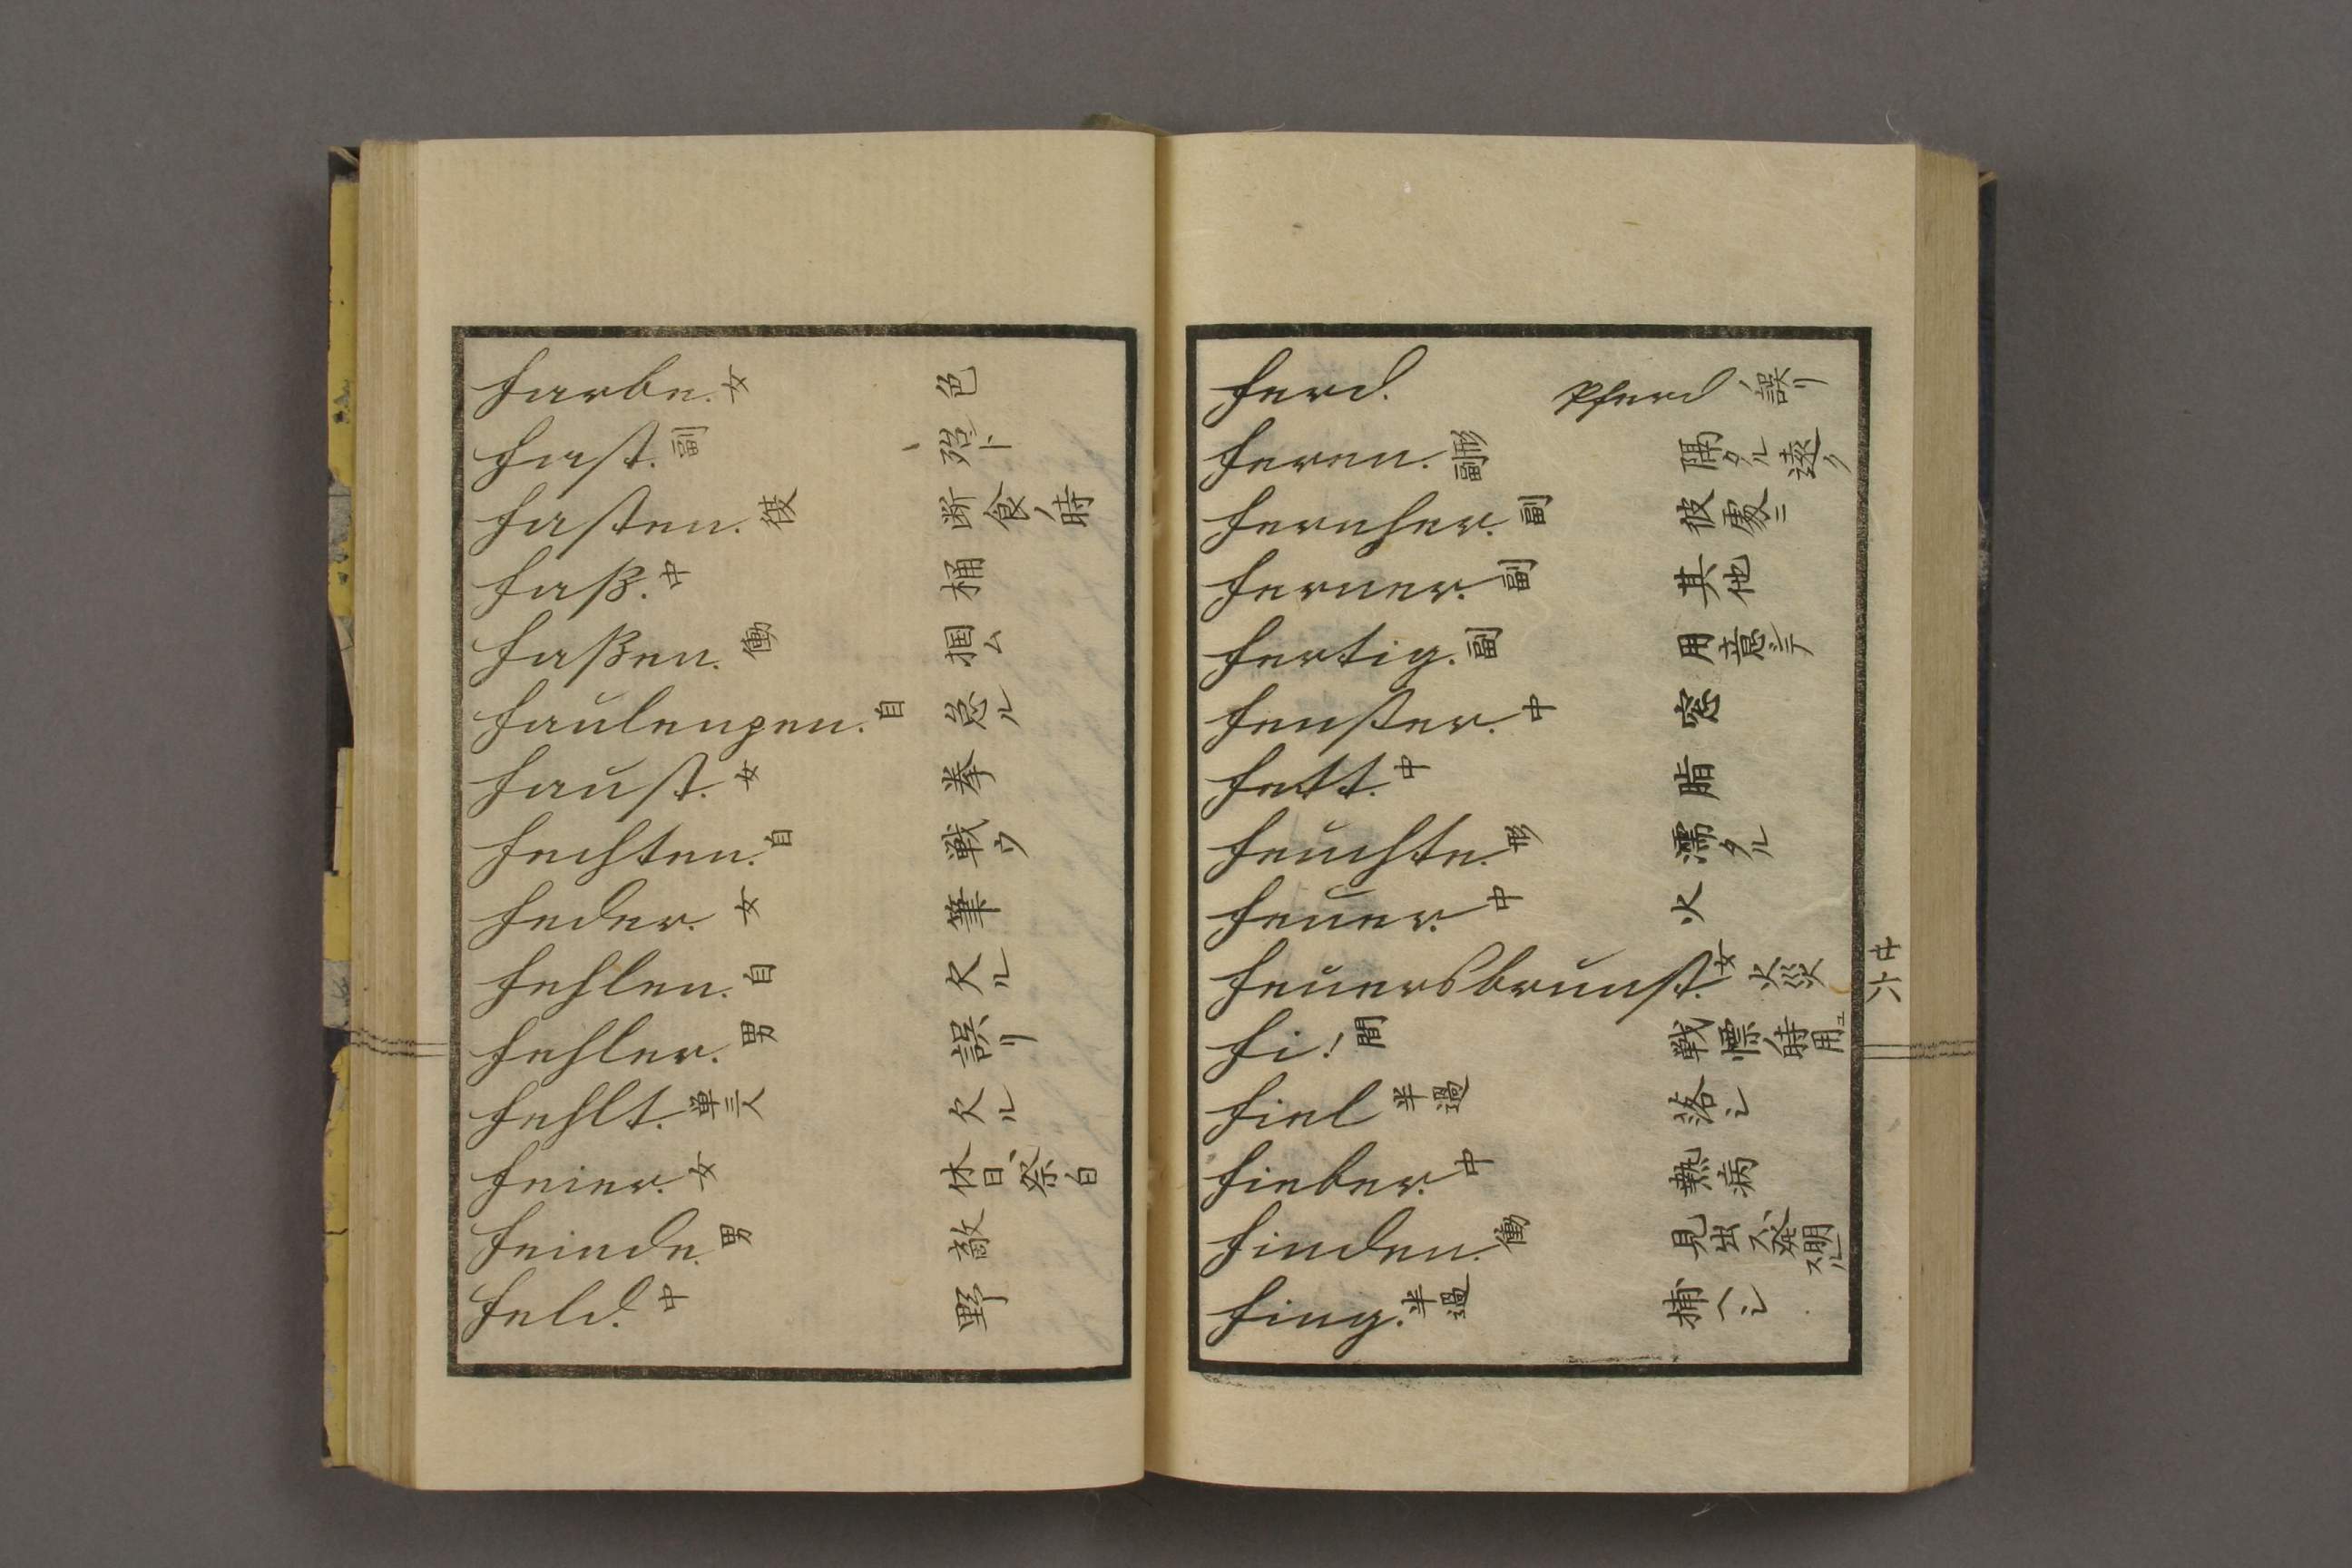 farbe. 女 色
fast. 副 殆ト
fasten. 復 断食ノ時
faß. 中 桶
faßen. 働 掴ム
faulenzen. 自 怠ル
faust. 女 拳
fechten. 自 戦ウ
feder. 女 筆
fehlen. 自 欠ル
fehler. 男 誤リ
fehlt. 単三人 欠ル
feier. 女 休日、祭日
feinde. 男 敵
feld. 中 野
ferd. Pferd ノ誤リ
feren. 副形 隔タル遠ク
fernher. 副 彼處ニ
ferner. 副 其他
fertig. 副 用意シテ
fenster. 中 窓
fett. 中 脂
feuchte. 形 濡タル
feuer. 中 火
feuersbrunst. 女 火災
fi! 間 戦慄ノ時用ユ
fiel 半過 落シ
fieber. 中 熱病
finden. 働 見出ス、発明スル
fing. 半過 捕ヘシ
廿六